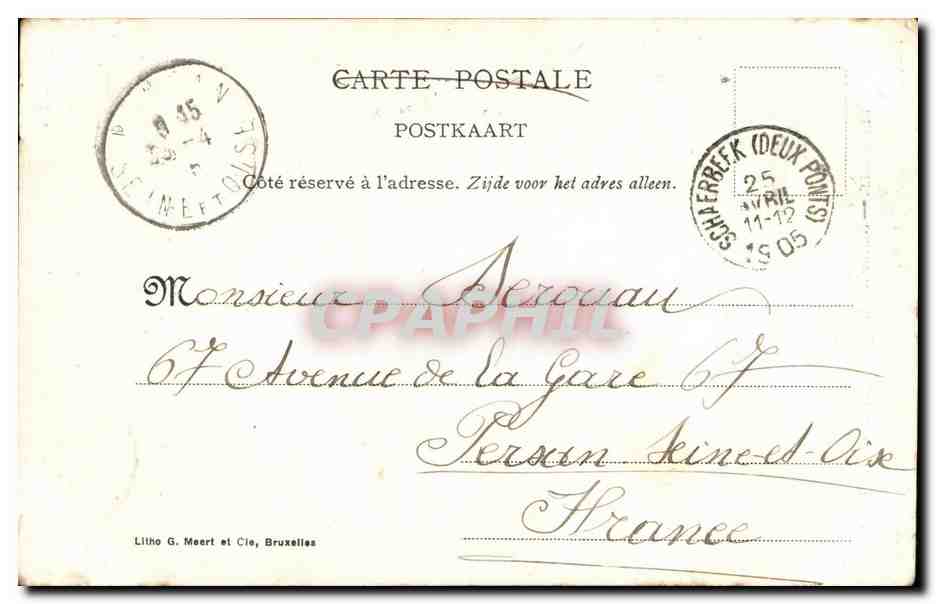 CARTE POSTALE
POSTKAART
Côté réservé à l'adresse. Zijde voor het adres alleen.
SEINE ET OISE
SCHAERBEEK (DEUX PONTS)
25
AVRIL
11-12
1905
Monsieur
67 Avenue de la Gare 67
Persan Seine-et-Oise
France
CPAPHIL
Litho G. Meert et Cie, Bruxelles